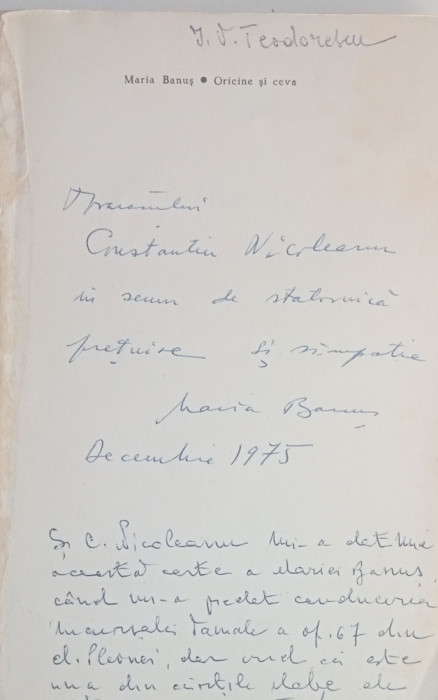 I. V. Teodorescu
Maria Banuș ● Oricine și ceva
Constantin Nicoleanu
în semn de statornică
prețuire și simpatie
Maria Banuș
Decembrie 1975
Și C. Nicoleanu mi-a dat mie
această carte a Mariei Banuș,
când mi-a predat conducerea
a of. 67 din
, dar cred că este
una din cărțile slabe ale